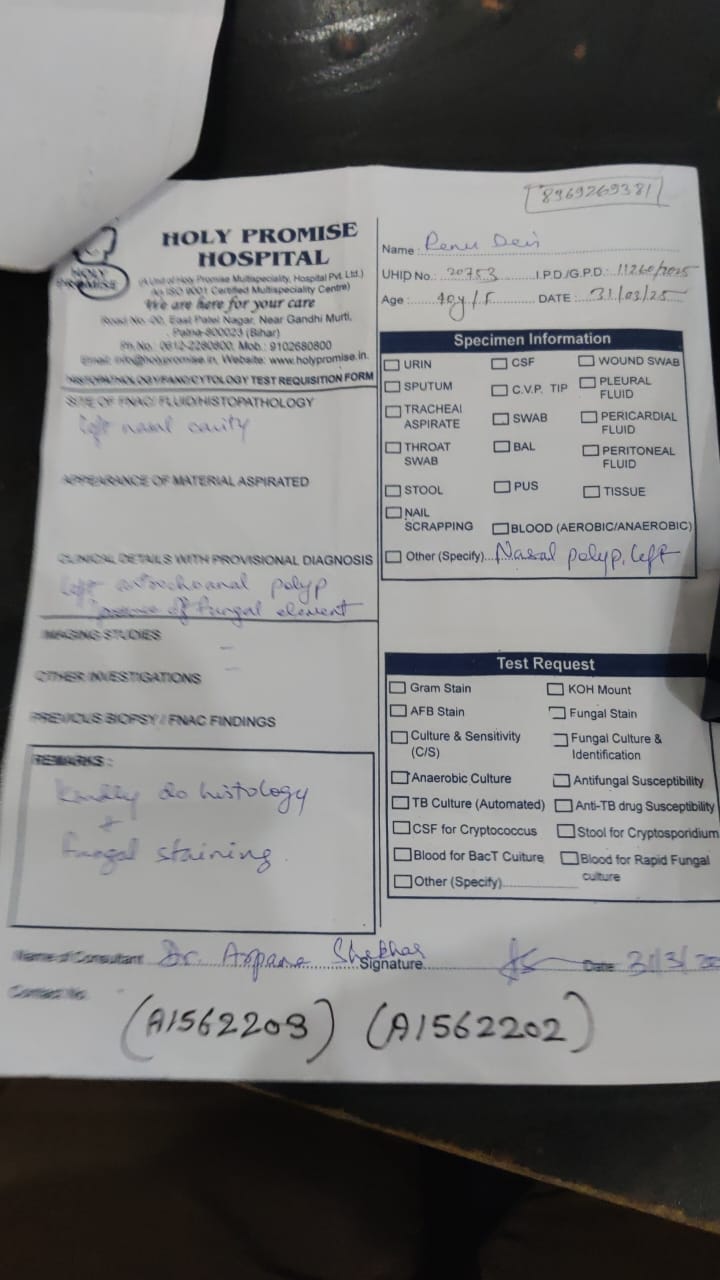 8969269381
HOLY PROMISE
HOSPITAL
HOLY
PROMISE
(A Unit of Holy Promise Multispeciality, Hospital Pvt. Ltd.)
(An ISO 9001 Certified Multispeciality Centre)
We are here for your care
Road No.-00, East Patel Nagar, Near Gandhi Murti,
Patna-800023 (Bihar)
Ph.No. 0612-2280800, Mob.: 9102680800
Email: info@holypromise.in, Website: www.holypromise.in.
HISTOPATHOLOGY/FANC/CYTOLOGY TEST REQUISITION FORM
SITE OF FNAC/ FLUID/HISTOPATHOLOGY
Left nasal cavity
APPEARANCE OF MATERIAL ASPIRATED
CLINICAL DETAILS WITH PROVISIONAL DIAGNOSIS
Left antrochoanal polyp
presence of fungal element
IMAGING STUDIES
OTHER INVESTIGATIONS
PREVIOUS BIOPSY / FNAC FINDINGS
REMARKS :
Kindly do histology
+
fungal staining.
Name : Renu Devi
UHIP No. 20753 I.P.D./G.P.D.: 11260/2025
Age : 40y/F DATE : 31/03/25
Specimen Information
URIN CSF WOUND SWAB
SPUTUM C.V.P. TIP PLEURAL
FLUID
TRACHEAI
ASPIRATE SWAB PERICARDIAL
FLUID
THROAT
SWAB BAL PERITONEAL
FLUID
STOOL PUS TISSUE
NAIL
SCRAPPING BLOOD (AEROBIC/ANAEROBIC)
Other (Specify)... Nasal polyp, left
Test Request
Gram Stain KOH Mount
AFB Stain Fungal Stain
Culture & Sensitivity
(C/S) Fungal Culture &
Identification
Anaerobic Culture Antifungal Susceptibility
TB Culture (Automated) Anti-TB drug Susceptibility
CSF for Cryptococcus Stool for Cryptosporidium
Blood for BacT Cuiture Blood for Rapid Fungal
culture
Other (Specify)
Name of Consultant Dr. Arpana Shekhar Signature Date 31/3/20
Contact No.
(A1562203) (A1562202)